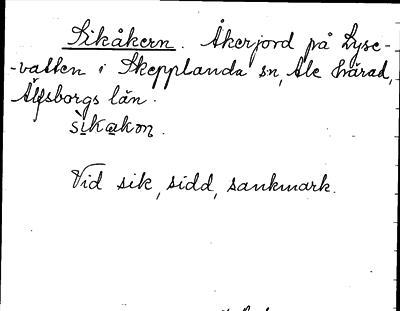 Sikåkern. Åkerjord på Lyse-
-vatten i Skepplanda sn, Ale härad,
Älfsborgs län.
sìkakɷn.
Vid sik, sidd, sankmark.